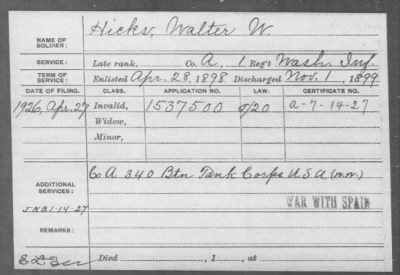 NAME OF SOLDIER: Hicks, Walter W.
SERVICE: Late rank, Co. A, 1 Reg't Wash. Inf.
TERM OF SERVICE: Enlisted Apr. 28, 1898 Discharged Nov. 1, 1899
DATE OF FILING. CLASS. APPLICATION NO. LAW. CERTIFICATE NO.
1926, Apr. 27 Invalid, 1537500 5/20 A-7-14-27
Widow,
Minor,
ADDITIONAL SERVICES: Co A 340 Btn Tank Corps U S A (m.m.)
WAR WITH SPAIN
JNB1-14-27
REMARKS:
Died , 1 , at